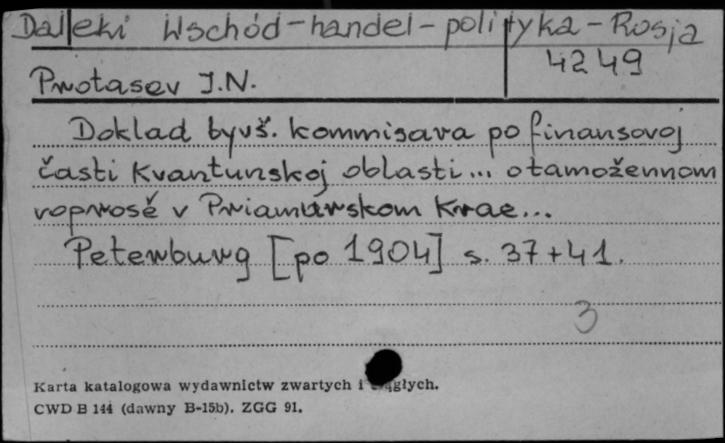 Daleki Wschód-handel-polityka-Rosja
4249
Protasev J.N.
Doklad byvš. kommisara po finansovoj
časti Kvantunskoj oblasti... o tamožennom
voprosě v Priamurskom Krae...
Peterburg [po 1904] s. 37+41.
3
Karta katalogowa wydawnictw zwartych i ciągłych.
CWD B 144 (dawny B-15b). ZGG 91.